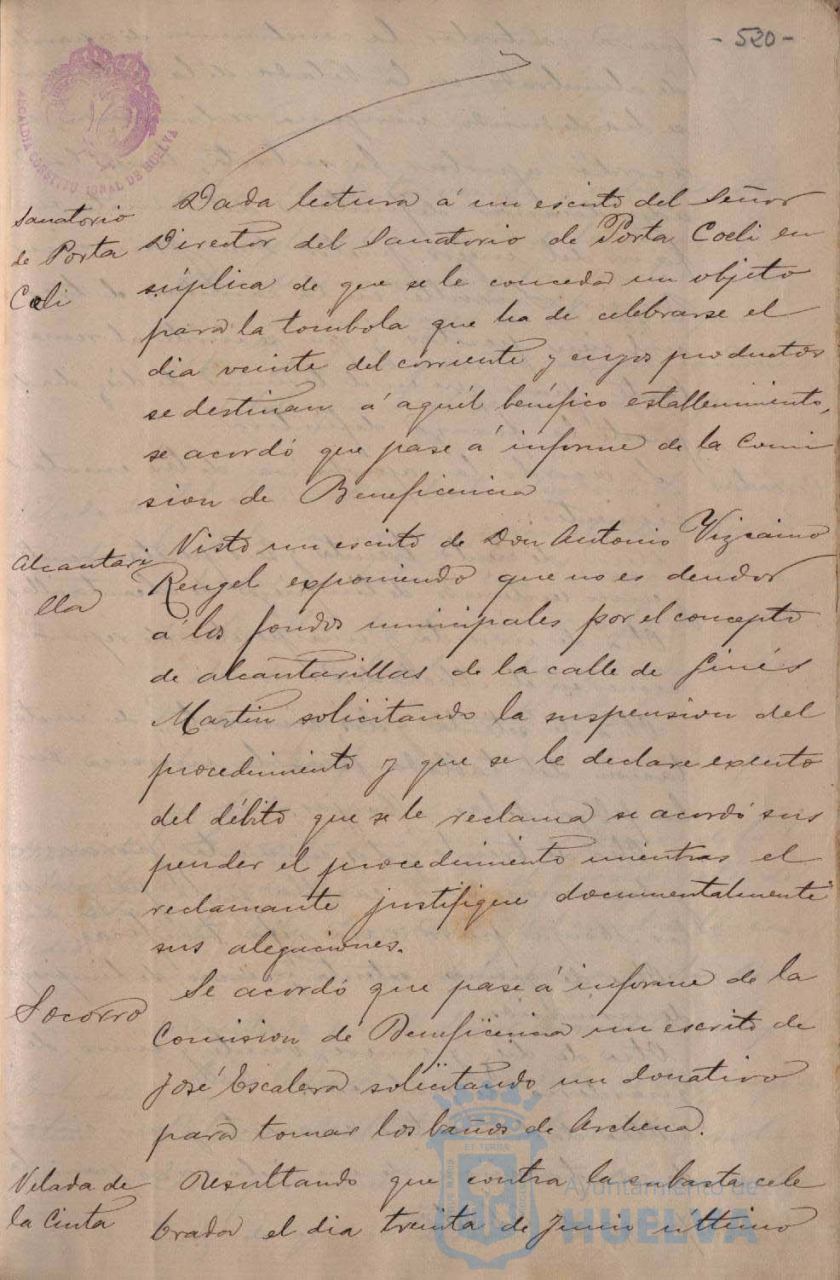 - 520 -
ALCALDIA CONSTITUCIONAL DE HUELVA
Sanatorio
de Porta
Coeli
Dada lectura á un escrito del Señor
Director del Sanatorio de Porta Coeli en
súplica de que se le conceda un objeto
para la tombola que ha de celebrarse el
dia veinte del corriente y cuyos productos
se destinan á aquél benéfico establecimiento,
se acordó que pase á informe de la Comi
sion de Beneficencia
Alcantari
lla
Visto un escrito de Don Antonio Vizcaino
Rengel exponiendo que no es deudor
á los fondos municipales por el concepto
de alcantarillas de la calle de Ginés
Martin solicitando la suspension del
procedimiento y que se le declare exento
del débito que se le reclama se acordó sus
pender el procedimiento mientras el
reclamante justifique documentalmente
sus alegaciones.
Socorro
Se acordó que pase á informe de la
Comision de Beneficencia un escrito de
José Escalera solicitando un donativo
para tomar los baños de Archena.
Velada de
la Cinta
Resultando que contra la subasta cele
brada el dia treinta de Junio último
Ayuntamiento de
HUELVA